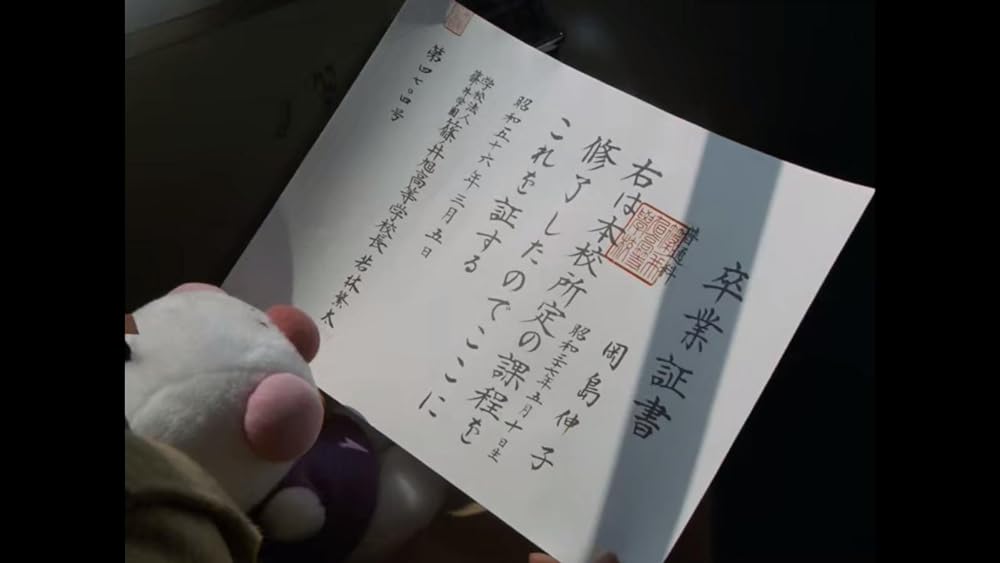 卒業証書
普通科
岡島伸子
昭和三十七年五月十日生
右は本校所定の課程を
修了したのでここに
これを証する
昭和五十六年三月五日
学校法人
藤井学園
篠井旭高等学校長 若林繁太
第四七〇四号